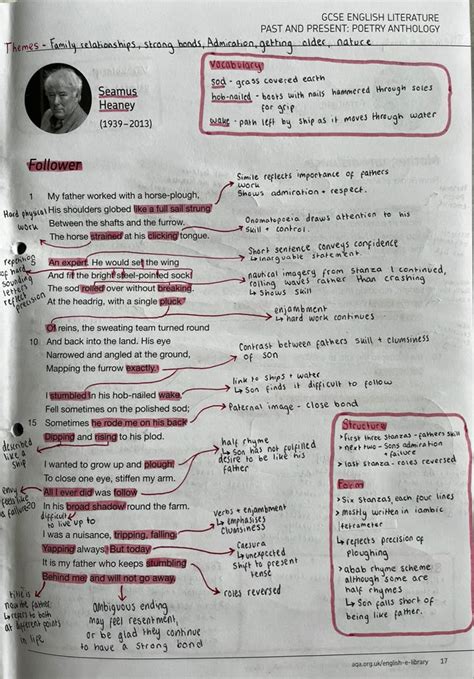 GCSE ENGLISH LITERATURE
PAST AND PRESENT: POETRY ANTHOLOGY
Themes - Family relationships, strong bonds, Admiration, getting older, nature
Vocabulary
sod - grass covered earth
hob-nailed - boots with nails hammered through soles
for grip
wake - path left by ship as it moves through water
Seamus
Heaney
(1939–2013)
Follower
Simile reflects importance of fathers
work
Shows admiration + respect.
1 My father worked with a horse-plough,
Hard physical
work
His shoulders globed like a full sail strung
Between the shafts and the furrow.
The horse strained at his clicking tongue.
Onomatopoeia draws attention to his
skill + control.
Short sentence conveys confidence
↳ inarguable statement.
repetition
of hard
sounding
letters
reflect
precision
5 An expert. He would set the wing
And fit the bright steel-pointed sock.
The sod rolled over without breaking.
At the headrig, with a single pluck
nautical imagery from stanza 1 continued,
rolling waves rather than crashing
↳ shows skill
enjambment
↳ hard work continues
Of reins, the sweating team turned round
10 And back into the land. His eye
Narrowed and angled at the ground,
Mapping the furrow exactly.
Contrast between fathers skill + clumsiness
of son
link to ships + water
↳ Son finds it difficult to follow
I stumbled in his hob-nailed wake,
Fell sometimes on the polished sod;
15 Sometimes he rode me on his back
Dipping and rising to his plod.
Paternal image - close bond
described
like a
ship
half rhyme
↳ Son has not fulfilled
desire to be like his
father
I wanted to grow up and plough,
To close one eye, stiffen my arm.
All I ever did was follow
20 In his broad shadow round the farm.
envy
feels like
a failure
difficult
to live up to
Verbs + enjambment
↳ emphasises
clumsiness
I was a nuisance, tripping, falling,
Yapping always. But today
It is my father who keeps stumbling
Behind me, and will not go away.
Caesura
↳ unexpected
shift to present
tense
roles reversed
title is
now the father
↳ refers to both
at different points
in life
ambiguous ending
may feel resentment,
or be glad they continue
to have a strong bond
Structure
first three stanzas - fathers skill
next two - sons admiration
+ failure
last stanza - roles reversed
Form
Six stanzas, each four lines
mostly written in iambic
tetrameter
↳ reflects precision of
ploughing
abab rhyme scheme
although some are
half rhymes
↳ Son falls short of
being like father.
aqa.org.uk/english-e-library 17